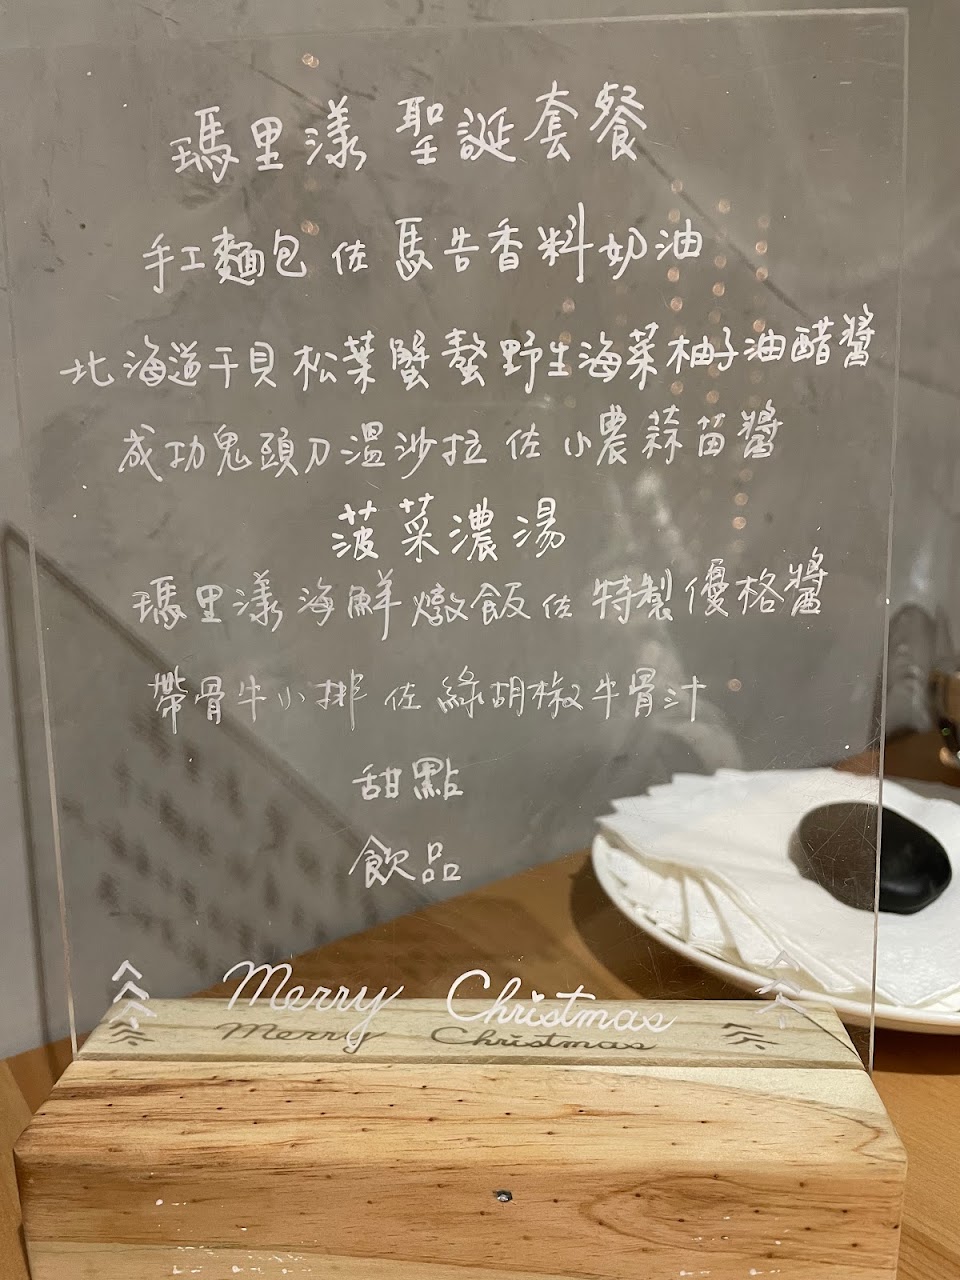 瑪里漾 聖誕套餐
手工麵包 佐 馬告香料奶油
北海道干貝松葉蟹螯野生海菜柚子油醋醬
成功鬼頭刀溫沙拉 佐 小農蒜苗醬
菠菜濃湯
瑪里漾海鮮燉飯佐 特製優格醬
帶骨牛小排 佐 綠胡椒牛骨汁
甜點
飲品
Merry Christmas